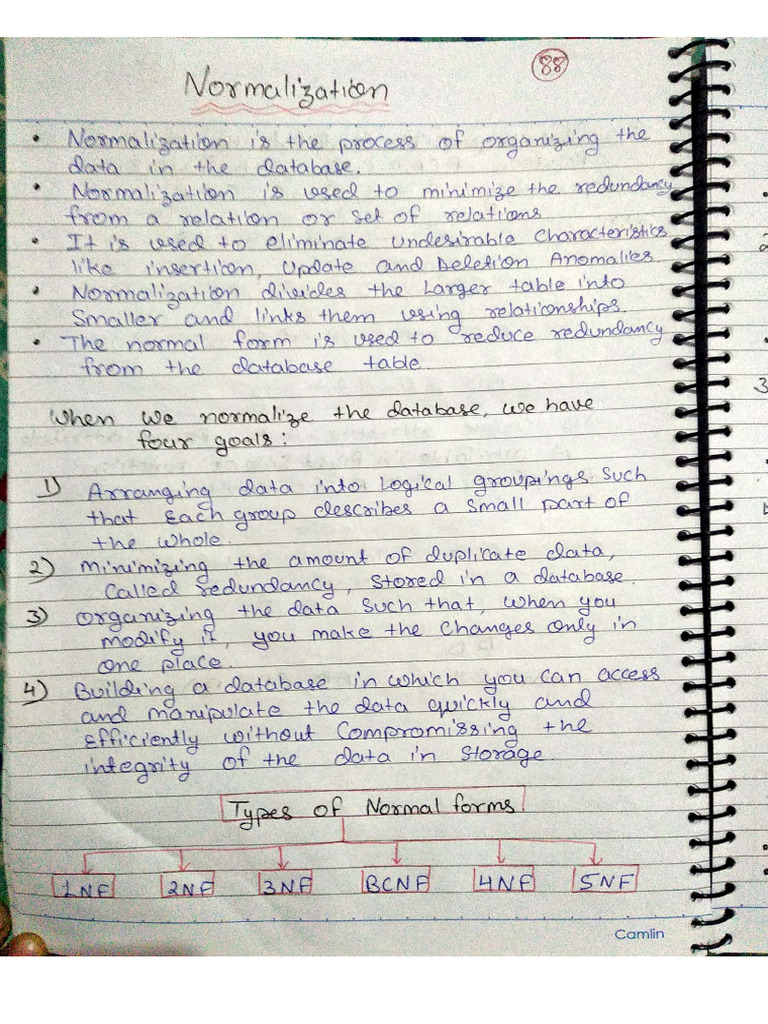 88
Normalization
• Normalization is the process of organizing the
data in the database.
• Normalization is used to minimize the redundancy
from a relation or set of relations
• It is used to eliminate undesirable characteristics
like insertion, Update and Deletion Anomalies.
• Normalization divides the Larger table into
Smaller and links them using relationships.
• The normal form is used to reduce redundancy
from the database table
When we normalize the database, we have
four goals:
1) Arranging data into Logical groupings such
that Each group describes a small part of
the whole.
2) Minimizing the amount of duplicate data,
called redundancy, stored in a database.
3) Organizing the data such that, when you
modify it, you make the changes only in
one place.
4) Building a database in which you can access
and manipulate the data quickly and
Efficiently without Compromissing the
integrity of the data in Storage.
Types of Normal forms.
1NF 2NF 3NF BCNF 4NF 5NF
Camlin